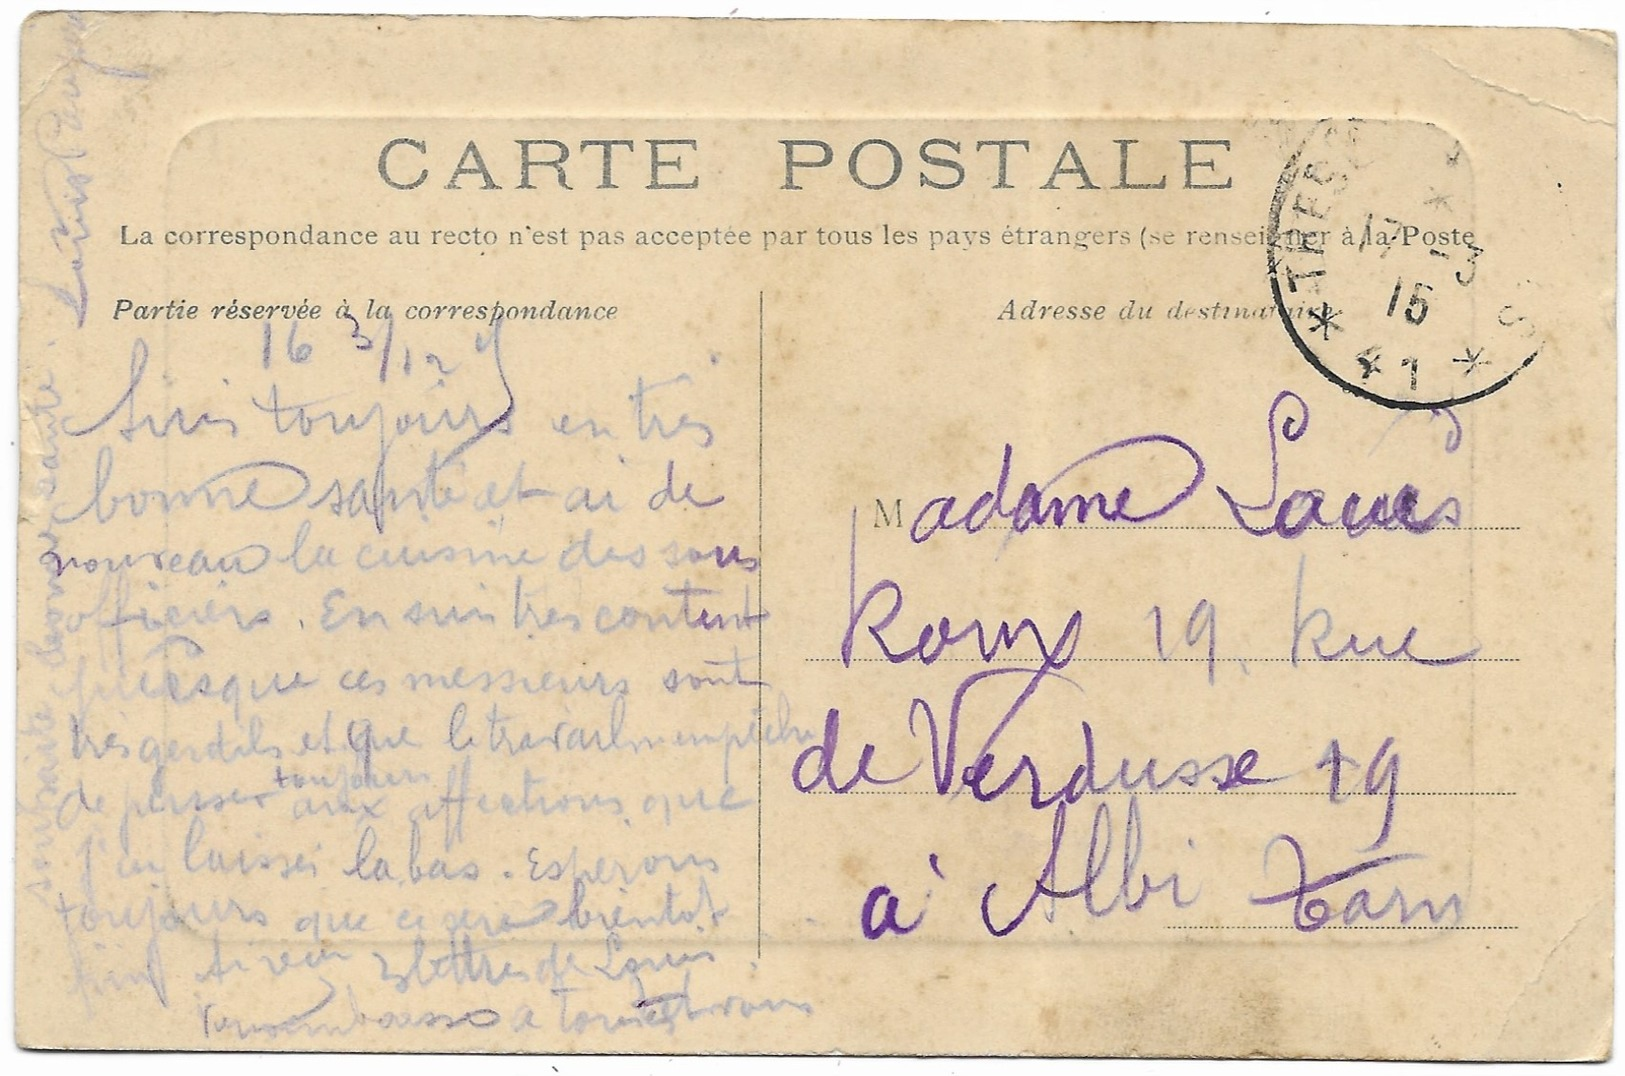 CARTE POSTALE
La correspondance au recto n'est pas acceptée par tous les pays étrangers (se renseigner à la Poste
Partie réservée à la correspondance
16 3/1
Suis toujours en très
bonne santé et ai de
nouveau la cuisine des sous
officiers. En suis tres content
puisque ces messieurs sont
très gentils et que le travail m'empêche
de penser toujours aux affections que
j'ai laissé labas. Espérons
toujours que ce sera bientôt
fini Ai reçu 3 lettres de Louis
Vous embrasse a tous et vous
souhaite bonne santé. Louis
Adresse du destinataire
Madame Louis
Roux 19, Rue
de Verdusse 19
à Albi Tarn
TRESOR
17 -3
15
* 1 *